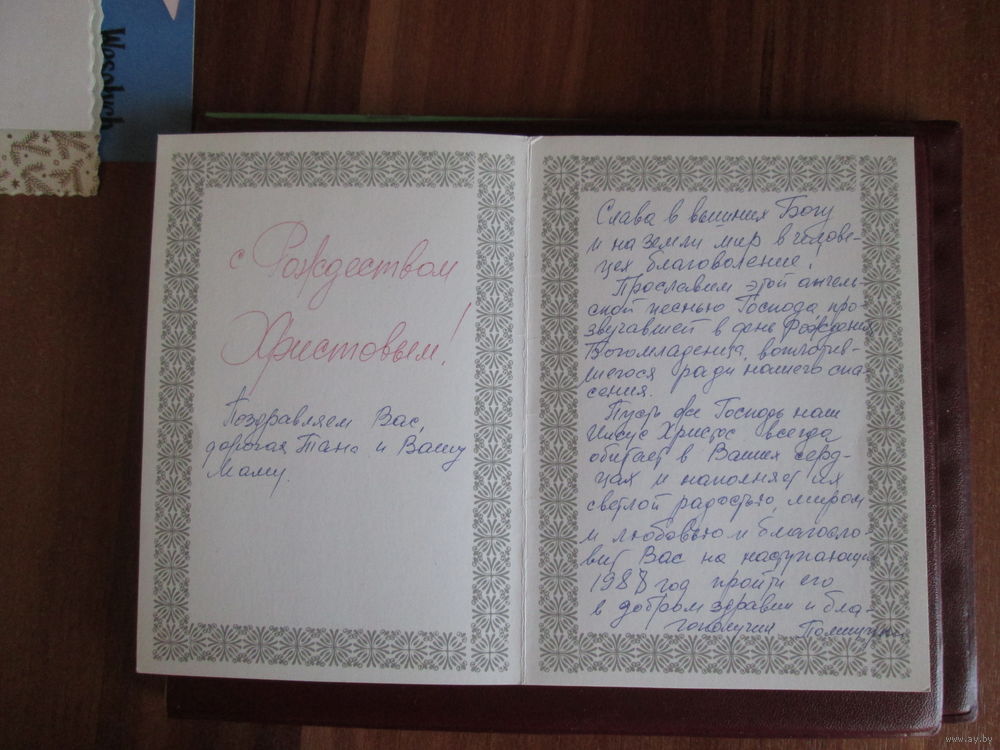 Wesołych
с Рождеством
Христовым!
Поздравляем Вас,
дорогая Таня и Вашу
маму.
Слава в вышних Богу
и на земли мир в челове-
цех благоволение!
Прославим этой ангель-
ской песнью Господа про-
звучавшей в день Рождения
Богомладенца, воплотив-
шегося ради нашего спа-
сения.
Пусть же Господь наш
Иисус Христос всегда
обитает в Ваших серд-
цах и наполняет их
светлой радостью, миром
и любовью и благосло-
вит Вас на наступающий
1988 год пройти его
в добром здравии и бла-
гополучии
www.ay.by